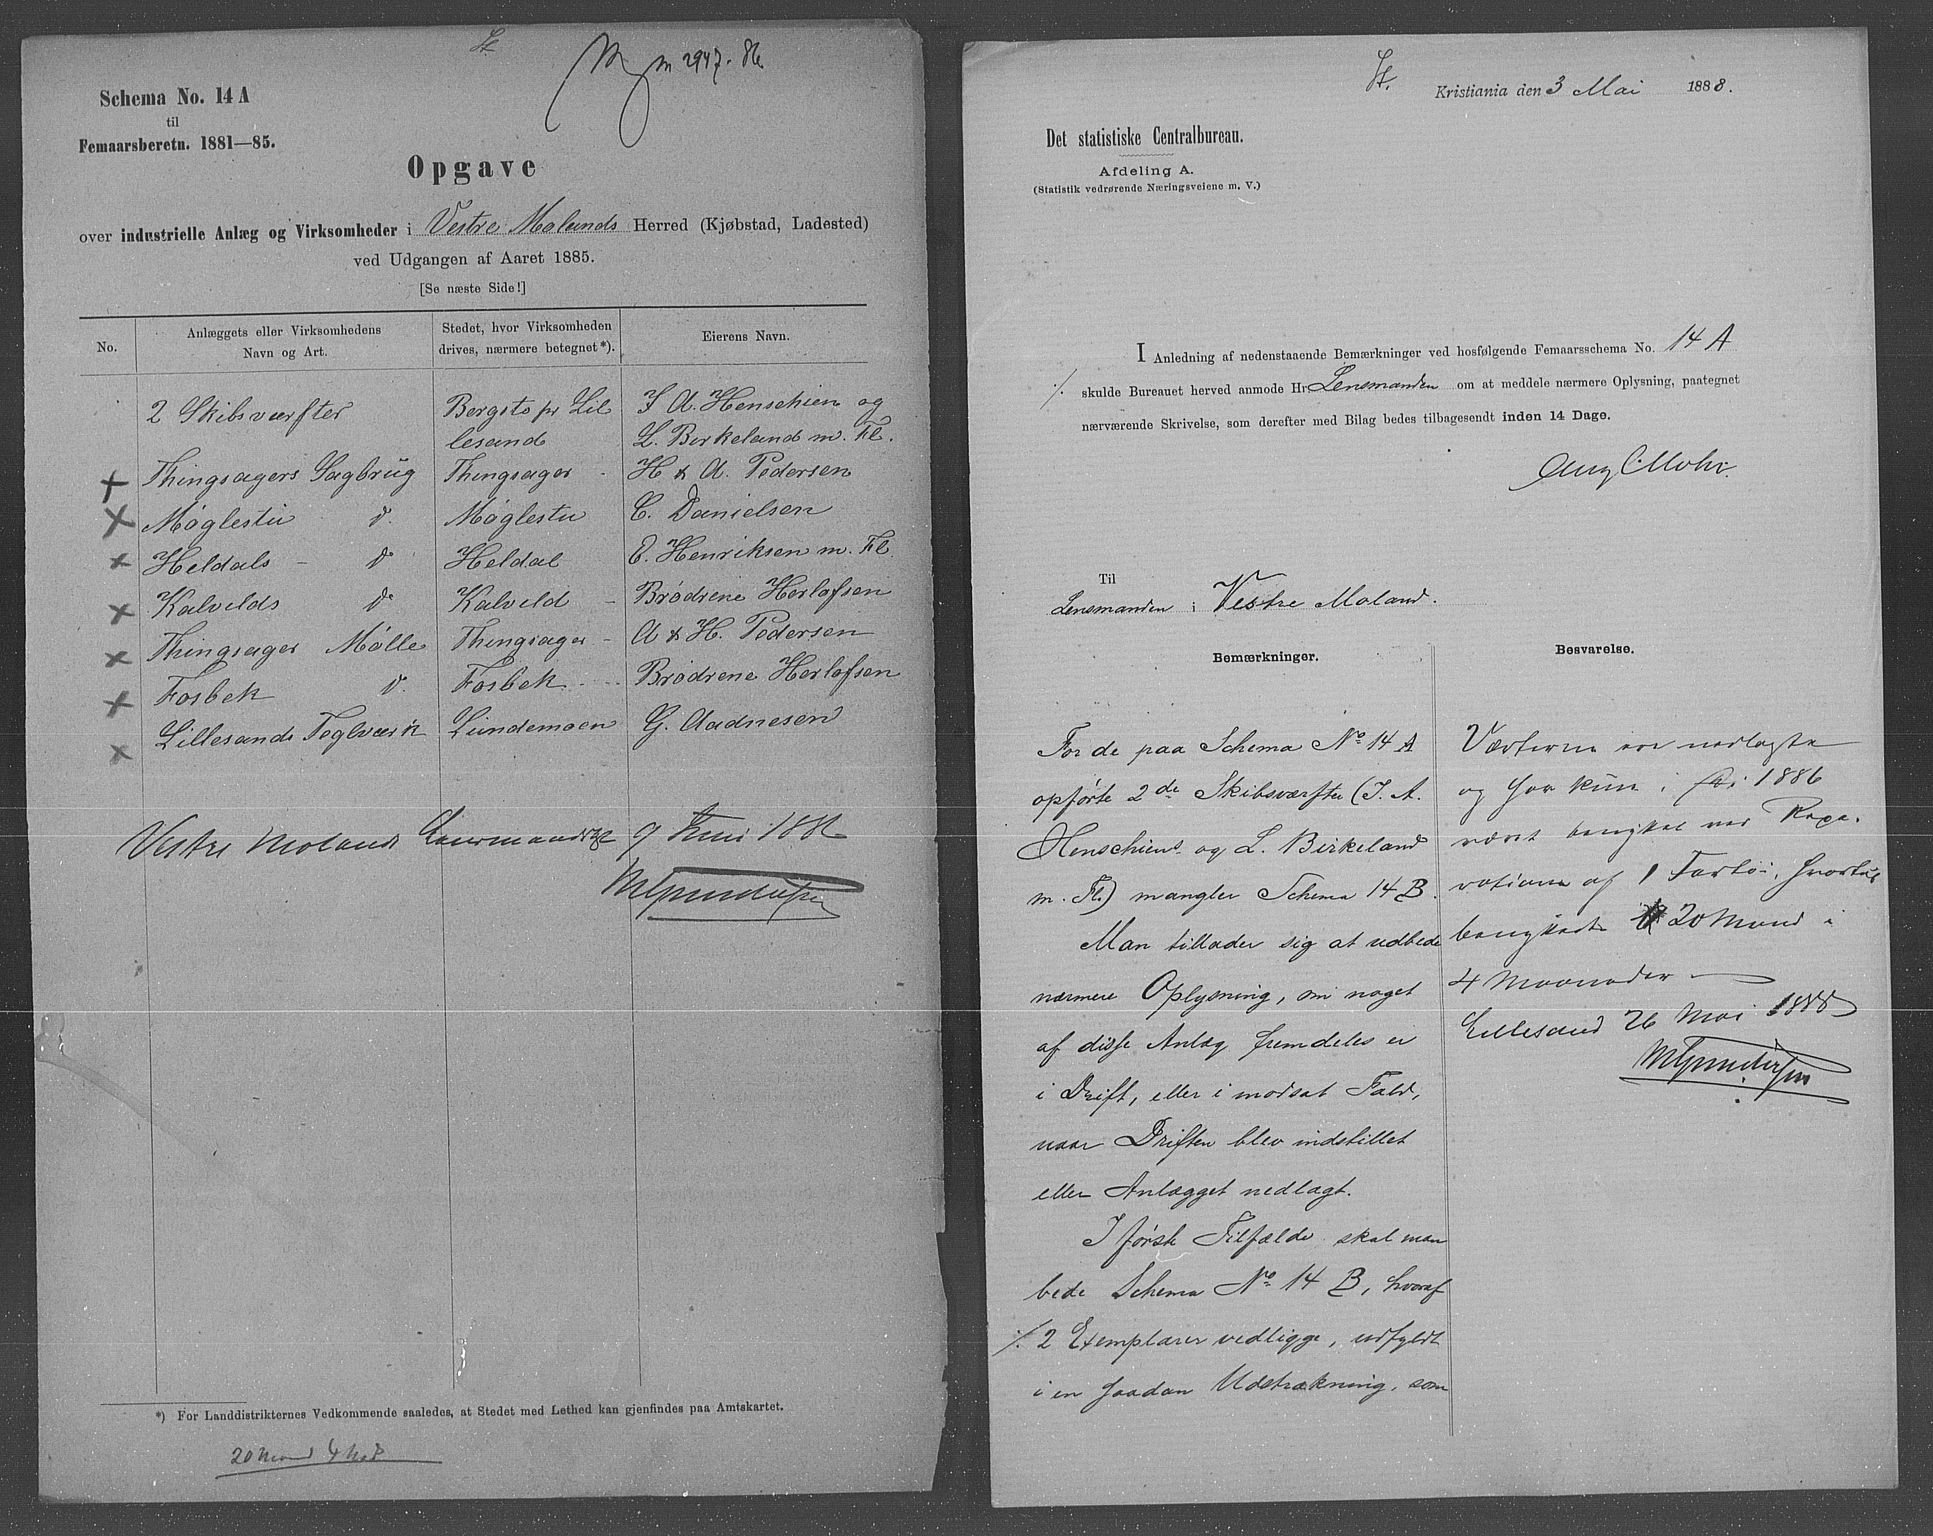 St.
m 2947. 86
Schema No. 14 A
til
Femaarsberetn. 1881—85.
Opgave
over industrielle Anlæg og Virksomheder i Vestre Molands Herred (Kjøbstad, Ladested)
ved Udgangen af Aaret 1885.
[Se næste Side!]
No. Anlæggets eller Virksomhedens Navn og Art. Stedet, hvor Virksomheden drives, nærmere betegnet*). Eierens Navn.
2 Skibsværfter Bergstø pr Lil J. A. Henschien og
lesand L. Birkeland m. Fl.
× Thingsagers Sagbrug Thingsager H & A. Pedersen
× Møglestu d. Møglestu C. Danielsen
× Heldals – d Heldal E. Henriksen m. Fl.
× Kalvilds d Kalvild Brødrene Herlofsen
× Thingsager Mølle Thingsager A & H. Pedersen
× Fosbek d. Fosbek Brødrene Herlofsen
× Lillesands Teglværk Lundemoen G. Aadnesen
Vestre Molands Lensmandsbst 9 Juni 1886
MGundersen
*) For Landdistrikternes Vedkommende saaledes, at Stedet med Lethed kan gjenfindes paa Amtskartet.
20 Mand 4 M.
St.
Kristiania den 3 Mai 1888.
Det statistiske Centralbureau.
Afdeling A.
(Statistik vedrørende Næringsveiene m. V.)
I Anledning af nedenstaaende Bemærkninger ved hosfølgende Femaarsschema No. 14 A
./. skulde Bureauet herved anmode Hr. Lensmanden om at meddele nærmere Oplysning, paategnet
nærværende Skrivelse, som derefter med Bilag bedes tilbagesendt inden 14 Dage.
Aug. Mohr.
Til
Lensmanden i Vestre Moland.
Bemærkninger.
For de paa Schema No 14 A
opførte 2de Skibsværfter (J. A.
Henschiens og L. Birkeland
m. Fl.) mangler Schema 14 B.
Man tillader sig at udbede
nærmere Oplysning, om noget
af disse Anlæg fremdeles er
i Drift, eller i modsat Fald,
naar Driften blev indstillet
eller Anlægget nedlagt.
I første Tilfælde skal man
bede Schema No 14 B, hvoraf
./. 2 Exemplarer vedligge, udfyldt
i en saadan Udstrækning, som
Besvarelse.
Værfterne ere nedlagte
og har kun i 1886
været benyttet ved Repa-
rationen af 1 Fartøi, hvortil
benyttedes 20 Mand i
4 Maaneder
Lillesand 26 Mai 1888
MGundersen